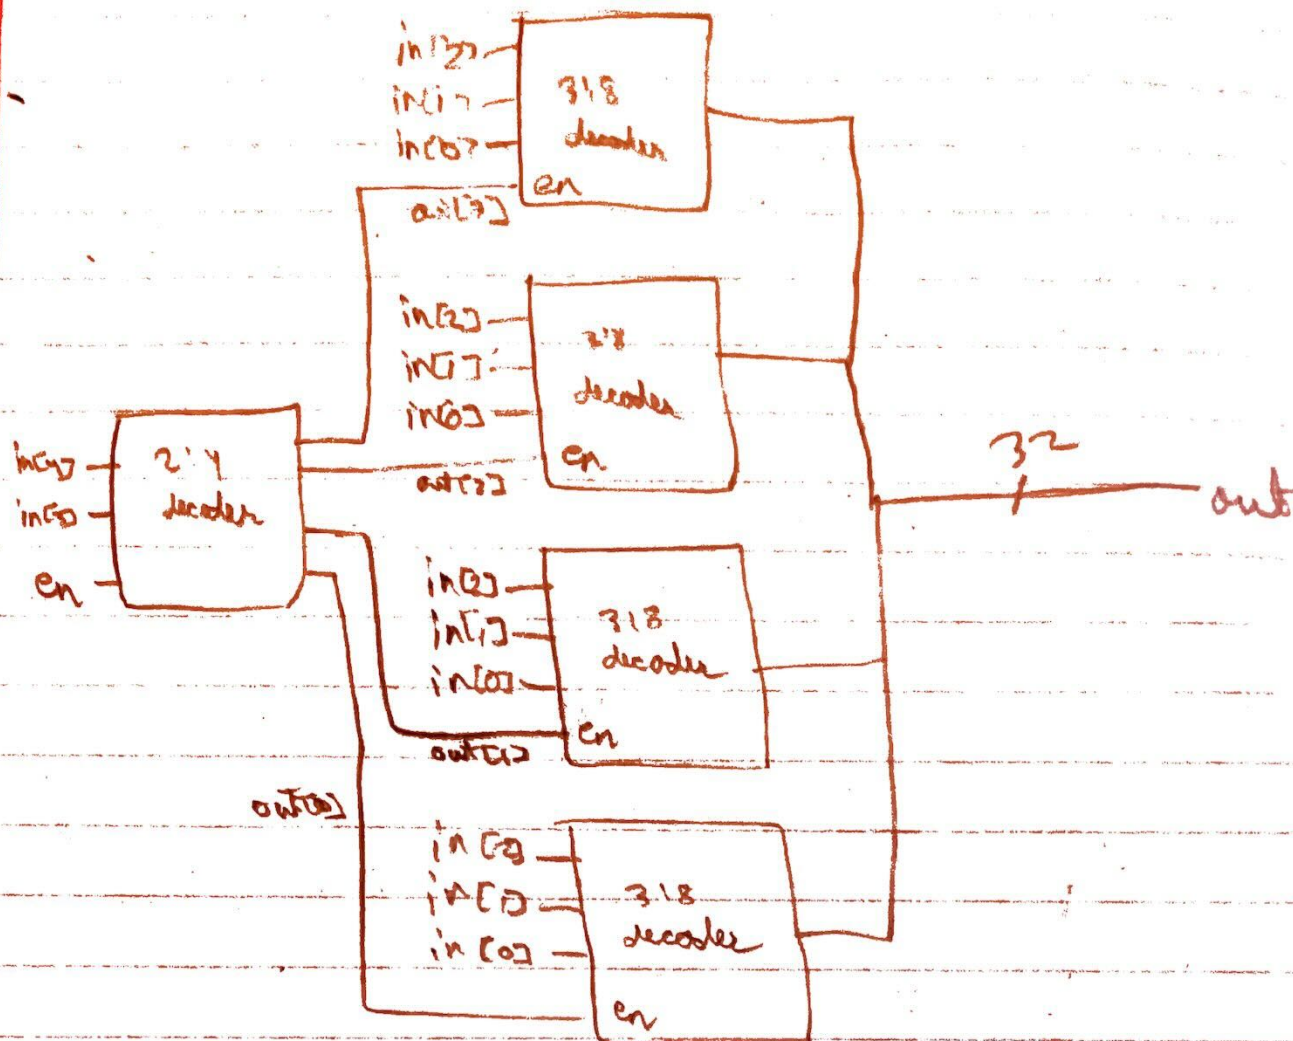 in[2]
in[1]
in[0]
3:8
decoder
en
out[3]
in[2]
in[1]
in[0]
3:8
decoder
en
out[2]
in[4]
in[3]
en
2:4
decoder
32
out
in[2]
in[1]
in[0]
3:8
decoder
en
out[1]
out[0]
in[2]
in[1]
in[0]
3:8
decoder
en